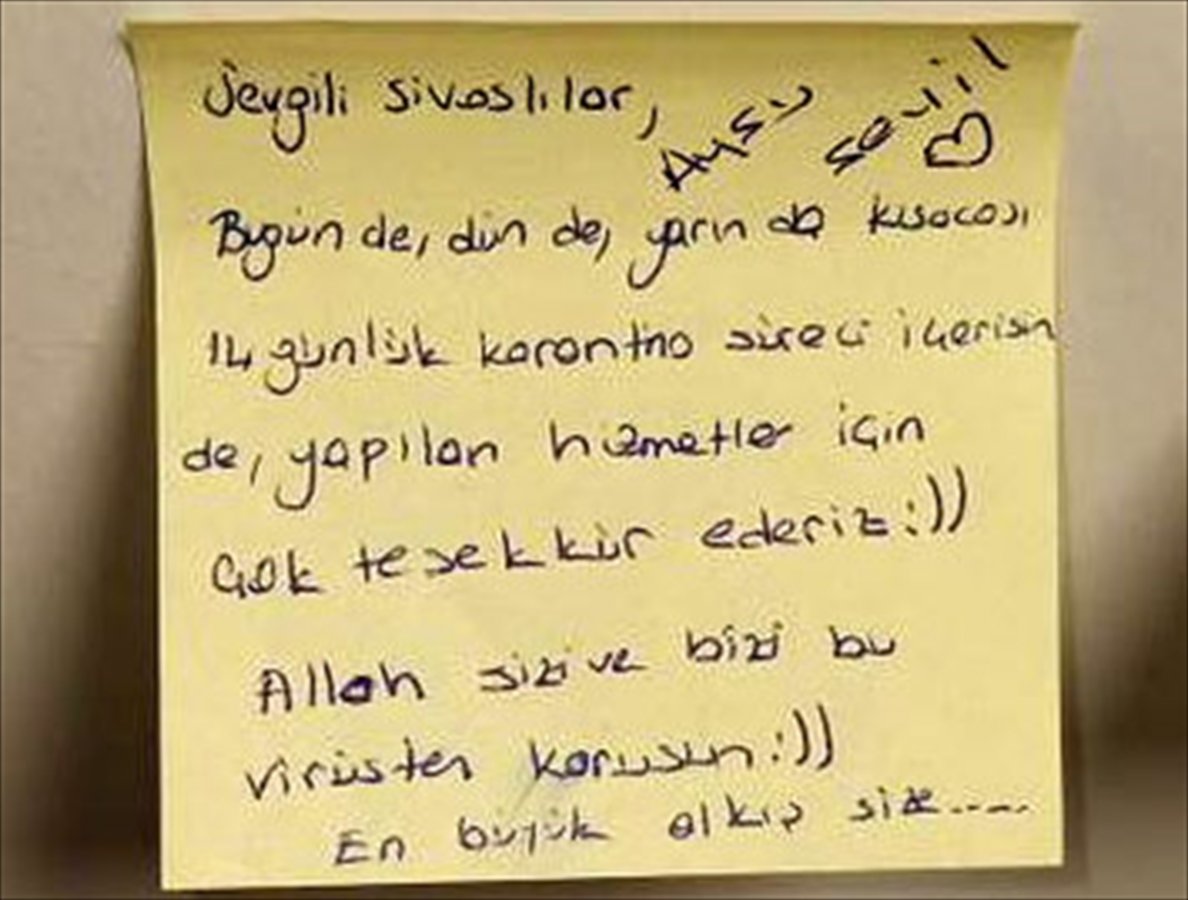 Sevgili Sivaslılar,
Aysu
Sevil
Bugün de, dün de, yarın da kısacası
14 günlük karantina süreci içerisin
de, yapılan hizmetler için
Çok teşekkür ederiz :))
Allah sizi ve bizi bu
virüsten korusun :))
En büyük alkış size.....